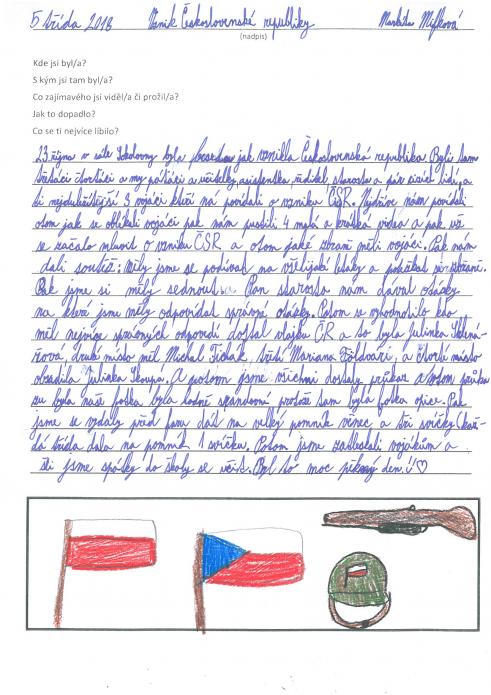 5 třída 2018 Vznik Československé republiky Markéta Mifková
(nadpis)
Kde jsi byl/a?
S kým jsi tam byl/a?
Co zajímavého jsi viděl/a či prožil/a?
Jak to dopadlo?
Co se ti nejvíce líbilo?
23. října v sále Sokolovny byla jak vznikla Československá republika. Byli tam
třeťáci čtvrťáci a my páťáci a učitelky, asistentka, ředitel starosta a pár lidí, a
ti nejdůležitější 3 vojáci kteří na povídali o vzniku ČSR. Nejdříve nám povídali
otom jak se oblékali vojáci pak nám pustili 4 malá a krátká videa a pak už
se začalo mluvit o vzniku ČSR a otom jaké zbraně měli vojáci. Pak nám
dali soutěž: měly jsme se podívat na všelijaké
Pak jsme si měly sednout a Pan starosta nám dával otázky
na které jsme měly odpovídat správně otázky. Potom se vyhodnotilo kdo
měl nejvíce správných odpovědí dostal vlajku ČR a to byla Julinka
druhé místo měl Michal třetí Mariana a čtvrté místo
obsadila Julinka Skoupá. A potom jsme všichni dostaly průkaz a
tu byla naše fotka byla hodně srandovní protože tam byla fotka opice. Pak
jsme se vydaly před faru dát na velký pomník věnec a tři svíčky (kaž-
dá třída dala na pomník 1 svíčku. Potom jsme vojákům a
šli jsme spátky do školy se učit. Byl to moc pěkný den! ♡